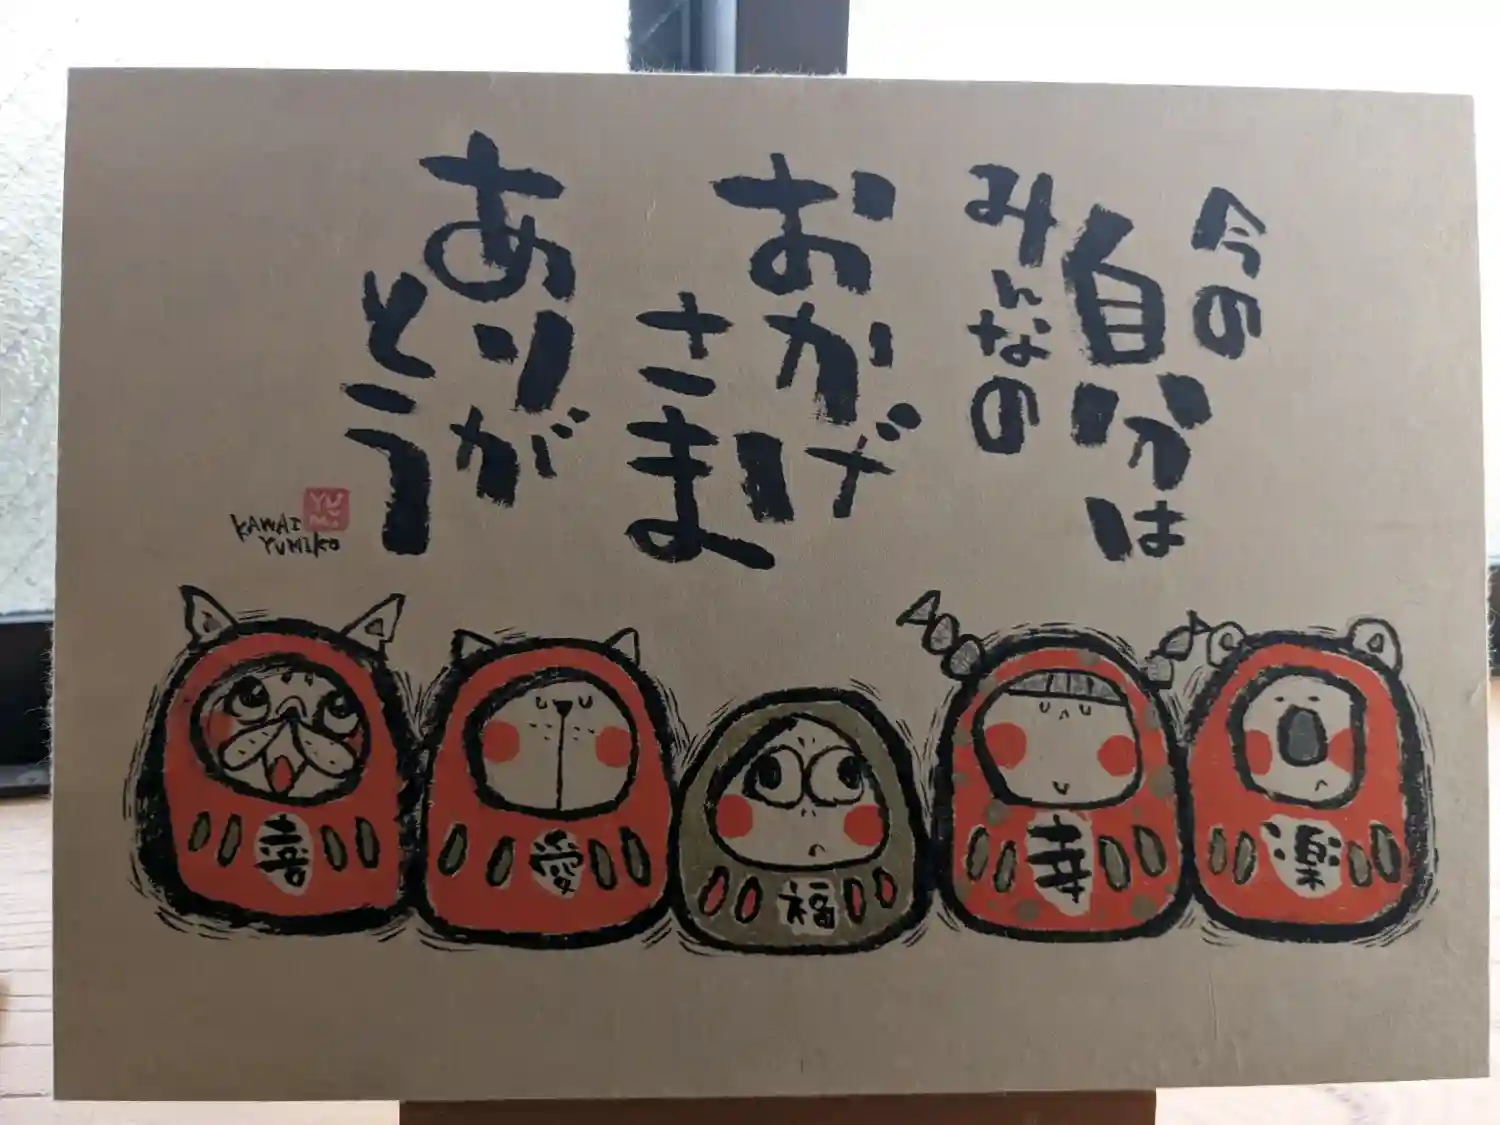 今の
自分は
みんなの
おかげ
さま
ありが
とう
KAWAI
YUMIKO
喜
愛
福
幸
楽